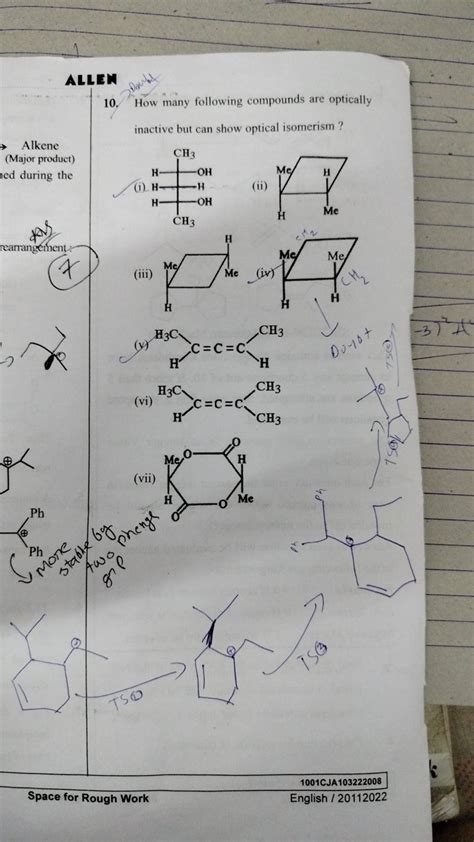 ALLEN
→ Alkene
(Major product)
ned during the
rearrangement :
Ans
7
10. How many following compounds are optically
inactive but can show optical isomerism ?
CH3
H OH
(i) H H
H OH
CH3
(ii) Me H
H Me
(iii) Me H
Me
H
(iv) Me Me
H H
CH2
CH2
Do not
(v) H3C CH3
C=C=C
H H
(vi) H3C CH3
C=C=C
H CH3
(vii) O
Me O H
H O Me
O
⊕ Ph
Ph
more
stable by
two phenyl
grp
Ph
Ph
TS①
TS②
1001CJA103222008
Space for Rough Work
English / 20112022